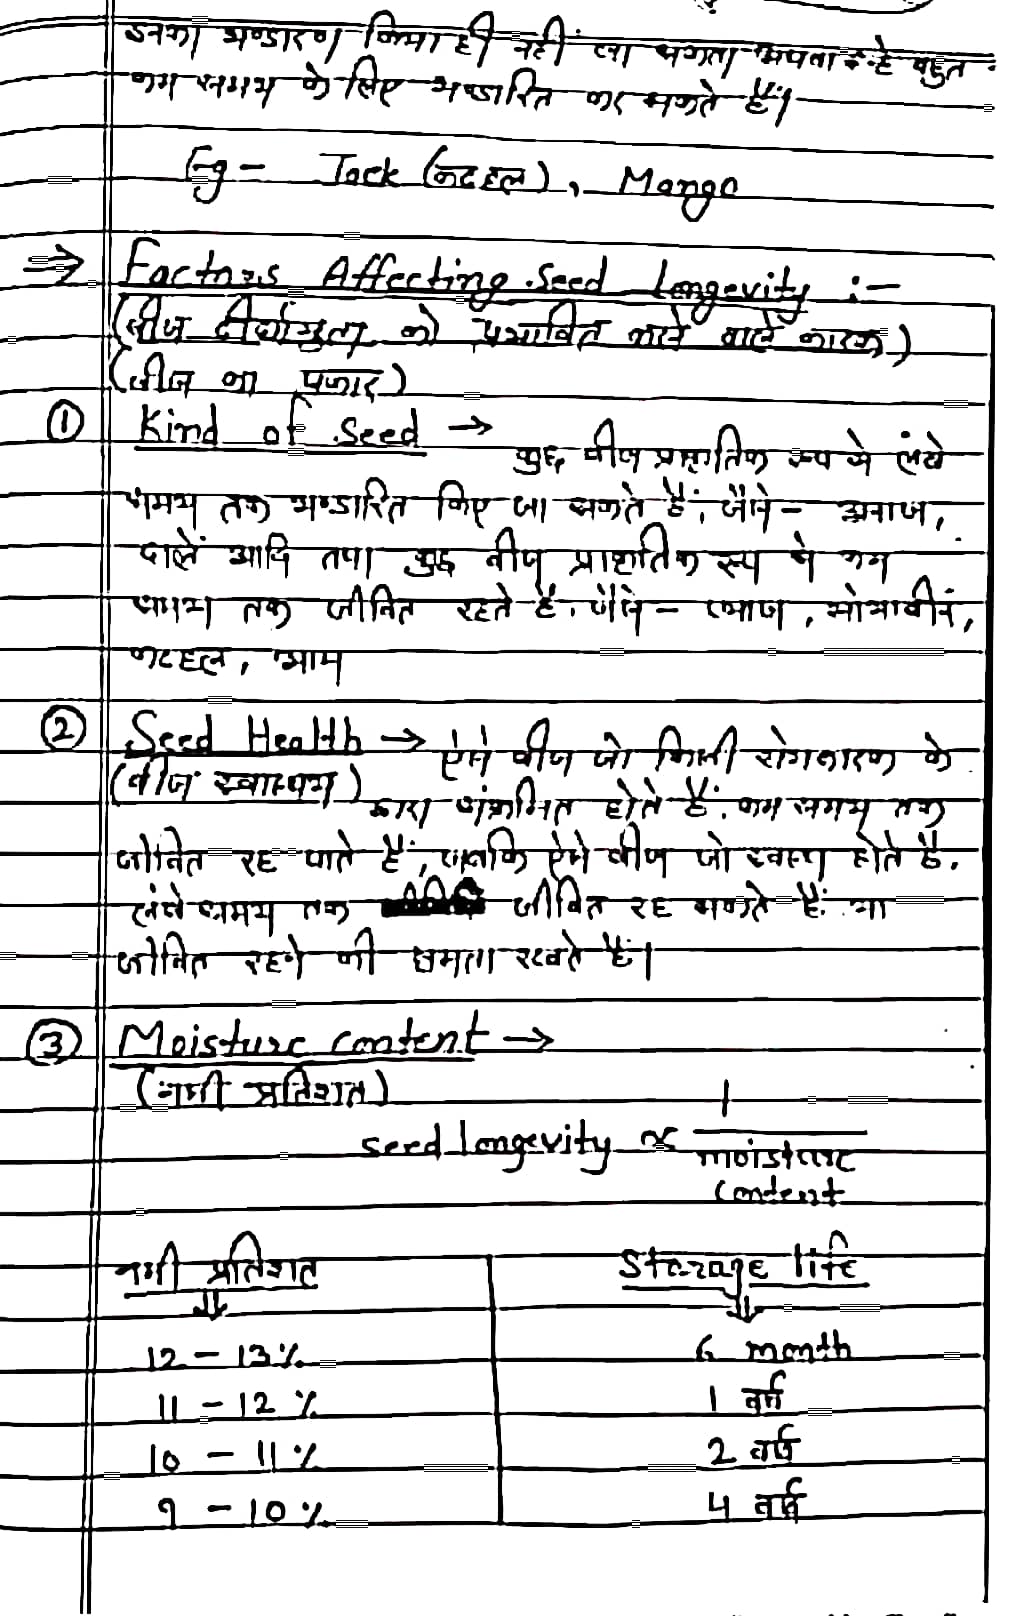 इनका भण्डारण किया ही नहीं जा सकता अथवा है बहुत
कम समय के लिए भण्डारित कर सकते हैं।
Eg - Jack (कटहल), Mango
⇒ Factors Affecting Seed Longevity :-
(बीज दीर्घायुता को प्रभावित करने वाले कारक)
(बीज का प्रकार)
① Kind of Seed → कुछ बीज प्राकृतिक रूप से लंबे
समय तक भण्डारित किए जा सकते हैं, जैसे - अनाज,
दालें आदि तथा कुछ बीज प्राकृतिक रूप से कम
समय तक जीवित रहते हैं. जैसे - प्याज, सोयाबीन,
कटहल, आम
② Seed Health → ऐसे बीज जो किसी रोगकारक के
(बीज स्वास्थ्य) द्वारा संक्रमित होते हैं. कम समय तक
जीवित रह पाते हैं, जबकि ऐसे बीज जो स्वस्थ होते है.
लंबे समय तक जीवित रह सकते हैं. या
जीवित रहने की क्षमता रखते हैं।
③ Moisture content →
(नमी प्रतिशत)
1
seed longevity ∝
moisture
content
नमी प्रतिशत Storage life
⇓ ⇓
12 - 13% 6 month
11 - 12 % 1 वर्ष
10 - 11 % 2 वर्ष
9 - 10 % 4 वर्ष